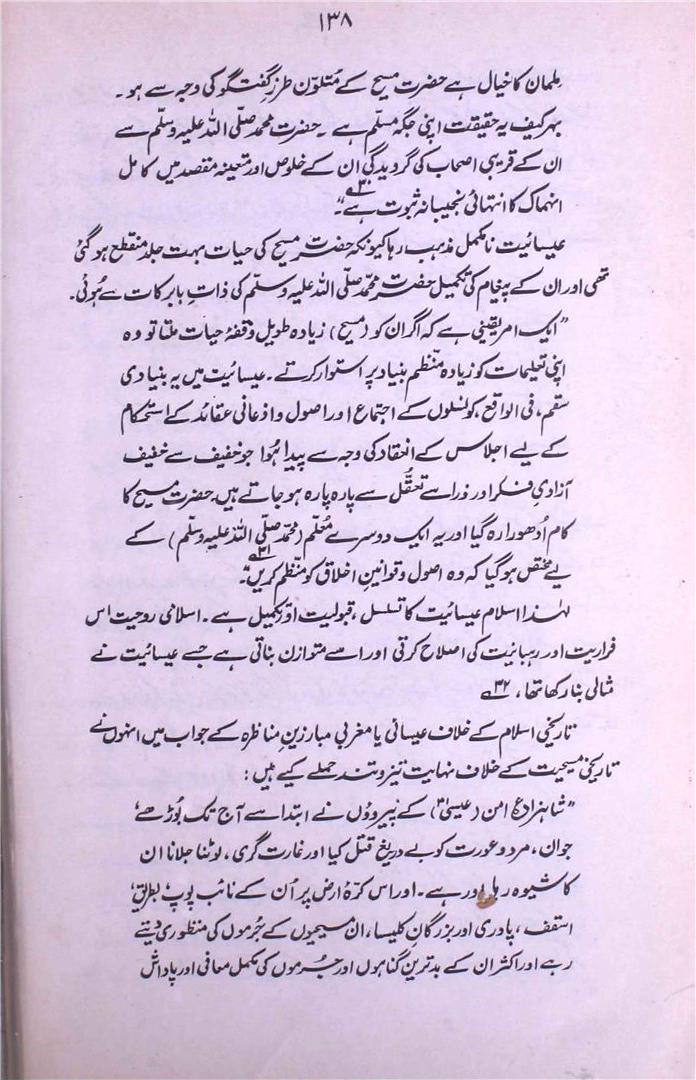 ۱۳۸
ملمان کا خیال ہے حضرت مسیح کے متلوّن طرزِ گفتگو کی وجہ سے ہو ۔
بہرکیف یہ حقیقت اپنی جگہ مسلّم ہے ۔ حضرت محمد صلّی اللہ علیہ وسلّم سے
ان کے قریبی اصحاب کی گرویدگی ان کے خلوص اور متعینہ مقصد میں کامل
انہماک کا انتہائی نجیبانہ ثبوت ہے ۳۰؎"۔
عیسائیت نامکمل مذہب رہا کیونکہ حضرت مسیح کی حیات بہت جلد منقطع ہو گئی
تھی اور ان کے پیغام کی تکمیل حضرت محمّد صلّی اللہ علیہ وسلّم کی ذاتِ بابرکات سے ہُوئی۔
"ایک امر یقینی ہے کہ اگر ان کو (مسیح) زیادہ طویل وقفۂ حیات ملتا تو وہ
اپنی تعلیمات کو زیادہ منّظم بنیاد پر استوار کرتے ۔ عیسائیت میں یہ بنیادی
سقم، فی الواقع، کونسلوں کے اجتماع اور اصول و اذعانی عقائد کے استحکام
کے لیے اجلاس کے انعقاد کی وجہ سے پیدا ہُوا جو خفیف سے خفیف
آزادیِ فکر اور ذرا سے تعقُّل سے پارہ پارہ ہو جاتے ہیں۔ حضرت مسیح کا
کام اُدھورا رہ گیا اور یہ ایک دوسرے مُعلّم (محمّد صلّی اللہ علیہ وسلّم) کے
لیے مختص ہو گیا کہ وہ اصول و قوانینِ اخلاق کو منّظم کریں ۳۱؎"۔
لہٰذا اسلام عیسائیت کا تسلسل ، قبولیت اور تکمیل ہے ۔ اسلامی روحیت اس
فراریت اور رہبانیت کی اصلاح کرتی اور اسے متوازن بناتی ہے جسے عیسائیت نے
مثالی بنا رکھا تھا ۔ ۳۲؎
تاریخی اسلام کے خلاف عیسائی یا مغربی مبارزینِ مناظرہ کے جواب میں انہوں نے
تاریخی مسیحیت کے خلاف نہایت تیز و تند حملے کیے ہیں :
"شاہزادۂ امن (عیسیٰؑ) کے پیروؤں نے ابتدا سے آج تک بُوڑھے،
جوان ، مرد و عورت کو بے دریغ قتل کیا اور غارت گری ، لوٹنا جلانا ان
کا شیوہ رہا اور ہے ۔ اور اس کرّۂ ارض پر اُن کے نائب پوپ، بطریق،
اسقف ، پادری اور بزرگانِ کلیسا، ان مسیحیوں کے جُرموں کی منظوری دیتے
رہے اور اکثر ان کے بدترین گناہوں اور جُرموں کی مکمل معافی اور پاداش